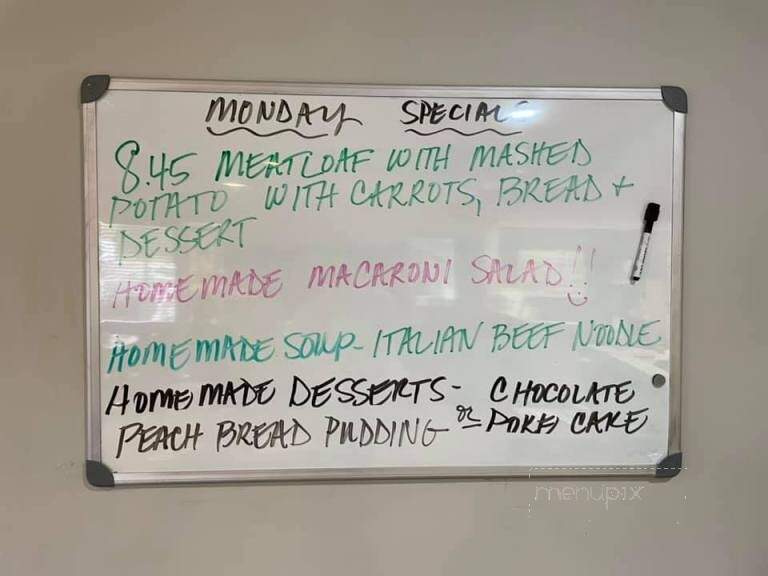 MONDAY SPECIAL
8.45 MEATLOAF WITH MASHED
POTATO WITH CARROTS, BREAD +
DESSERT
HOMEMADE MACARONI SALAD!!
HOMEMADE SOUP - ITALIAN BEEF NOODLE
HOMEMADE DESSERTS - CHOCOLATE
PEACH BREAD PUDDING or POKE CAKE
menupix